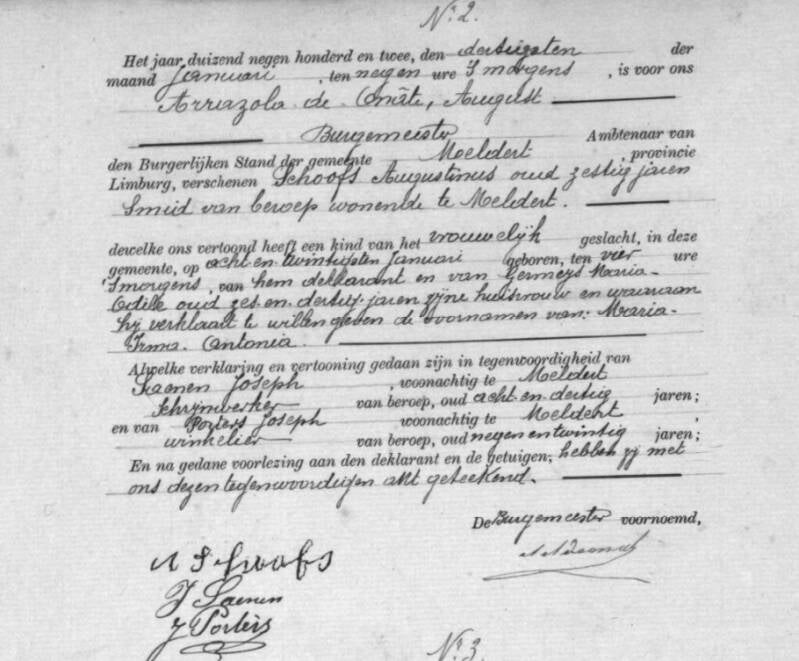 N.º 2.
Het jaar duizend negen honderd en twee, den dertigsten der
maand Januari, ten negen ure 's morgens, is voor ons
Arrazola de Oñate, August
Burgemeester Ambtenaar van
den Burgerlijken Stand der gemeente Meldert, provincie
Limburg, verschenen Schoofs Augustinus oud zestig jaren
Smid van beroep wonende te Meldert.
dewelke ons vertoond heeft een kind van het vrouwelijk geslacht, in deze
gemeente, op acht en twintigsten Januari geboren, ten vier ure
'Smorgens, van hem deklarant en van Germeys Maria-
Odile oud zes en dertig jaren zijne huisvrouw en waaraan
hij verklaart te willen geven de voornamen van: Maria-
Irma. Antonia.
Alwelke verklaring en vertooning gedaan zijn in tegenwoordigheid van
Saenen Joseph, woonachtig te Meldert
Schrijnwerker van beroep, oud acht en dertig jaren;
en van Porters Joseph woonachtig te Meldert,
winkelier van beroep, oud negen en twintig jaren;
En na gedane voorlezing aan den deklarant en de getuigen, hebben zij met
ons dezen tegenwoordigen akt geteekend.
De Burgemeester voornoemd,
A Schoofs
J Saenen
J Porters
N.º 3.